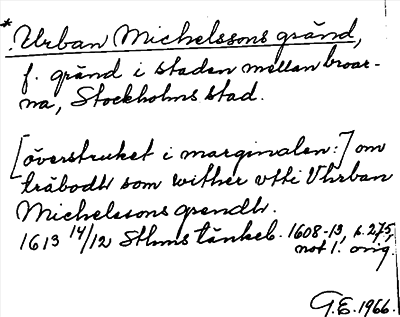 *Urban Michelssons gränd,
f. gränd i staden mellan broar-
na, Stockholms stad.
[överstruket i marginalen:] om
träbodh som wither vtti Vhrban
Michelssons grendh.
1613 14/12 Sthms tänkeb. 1608-13, s. 275,
not 1. orig.
G.E. 1966.